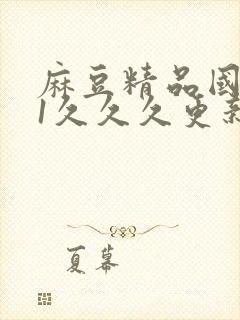 麻豆精品國
1久久久更新
夏幕